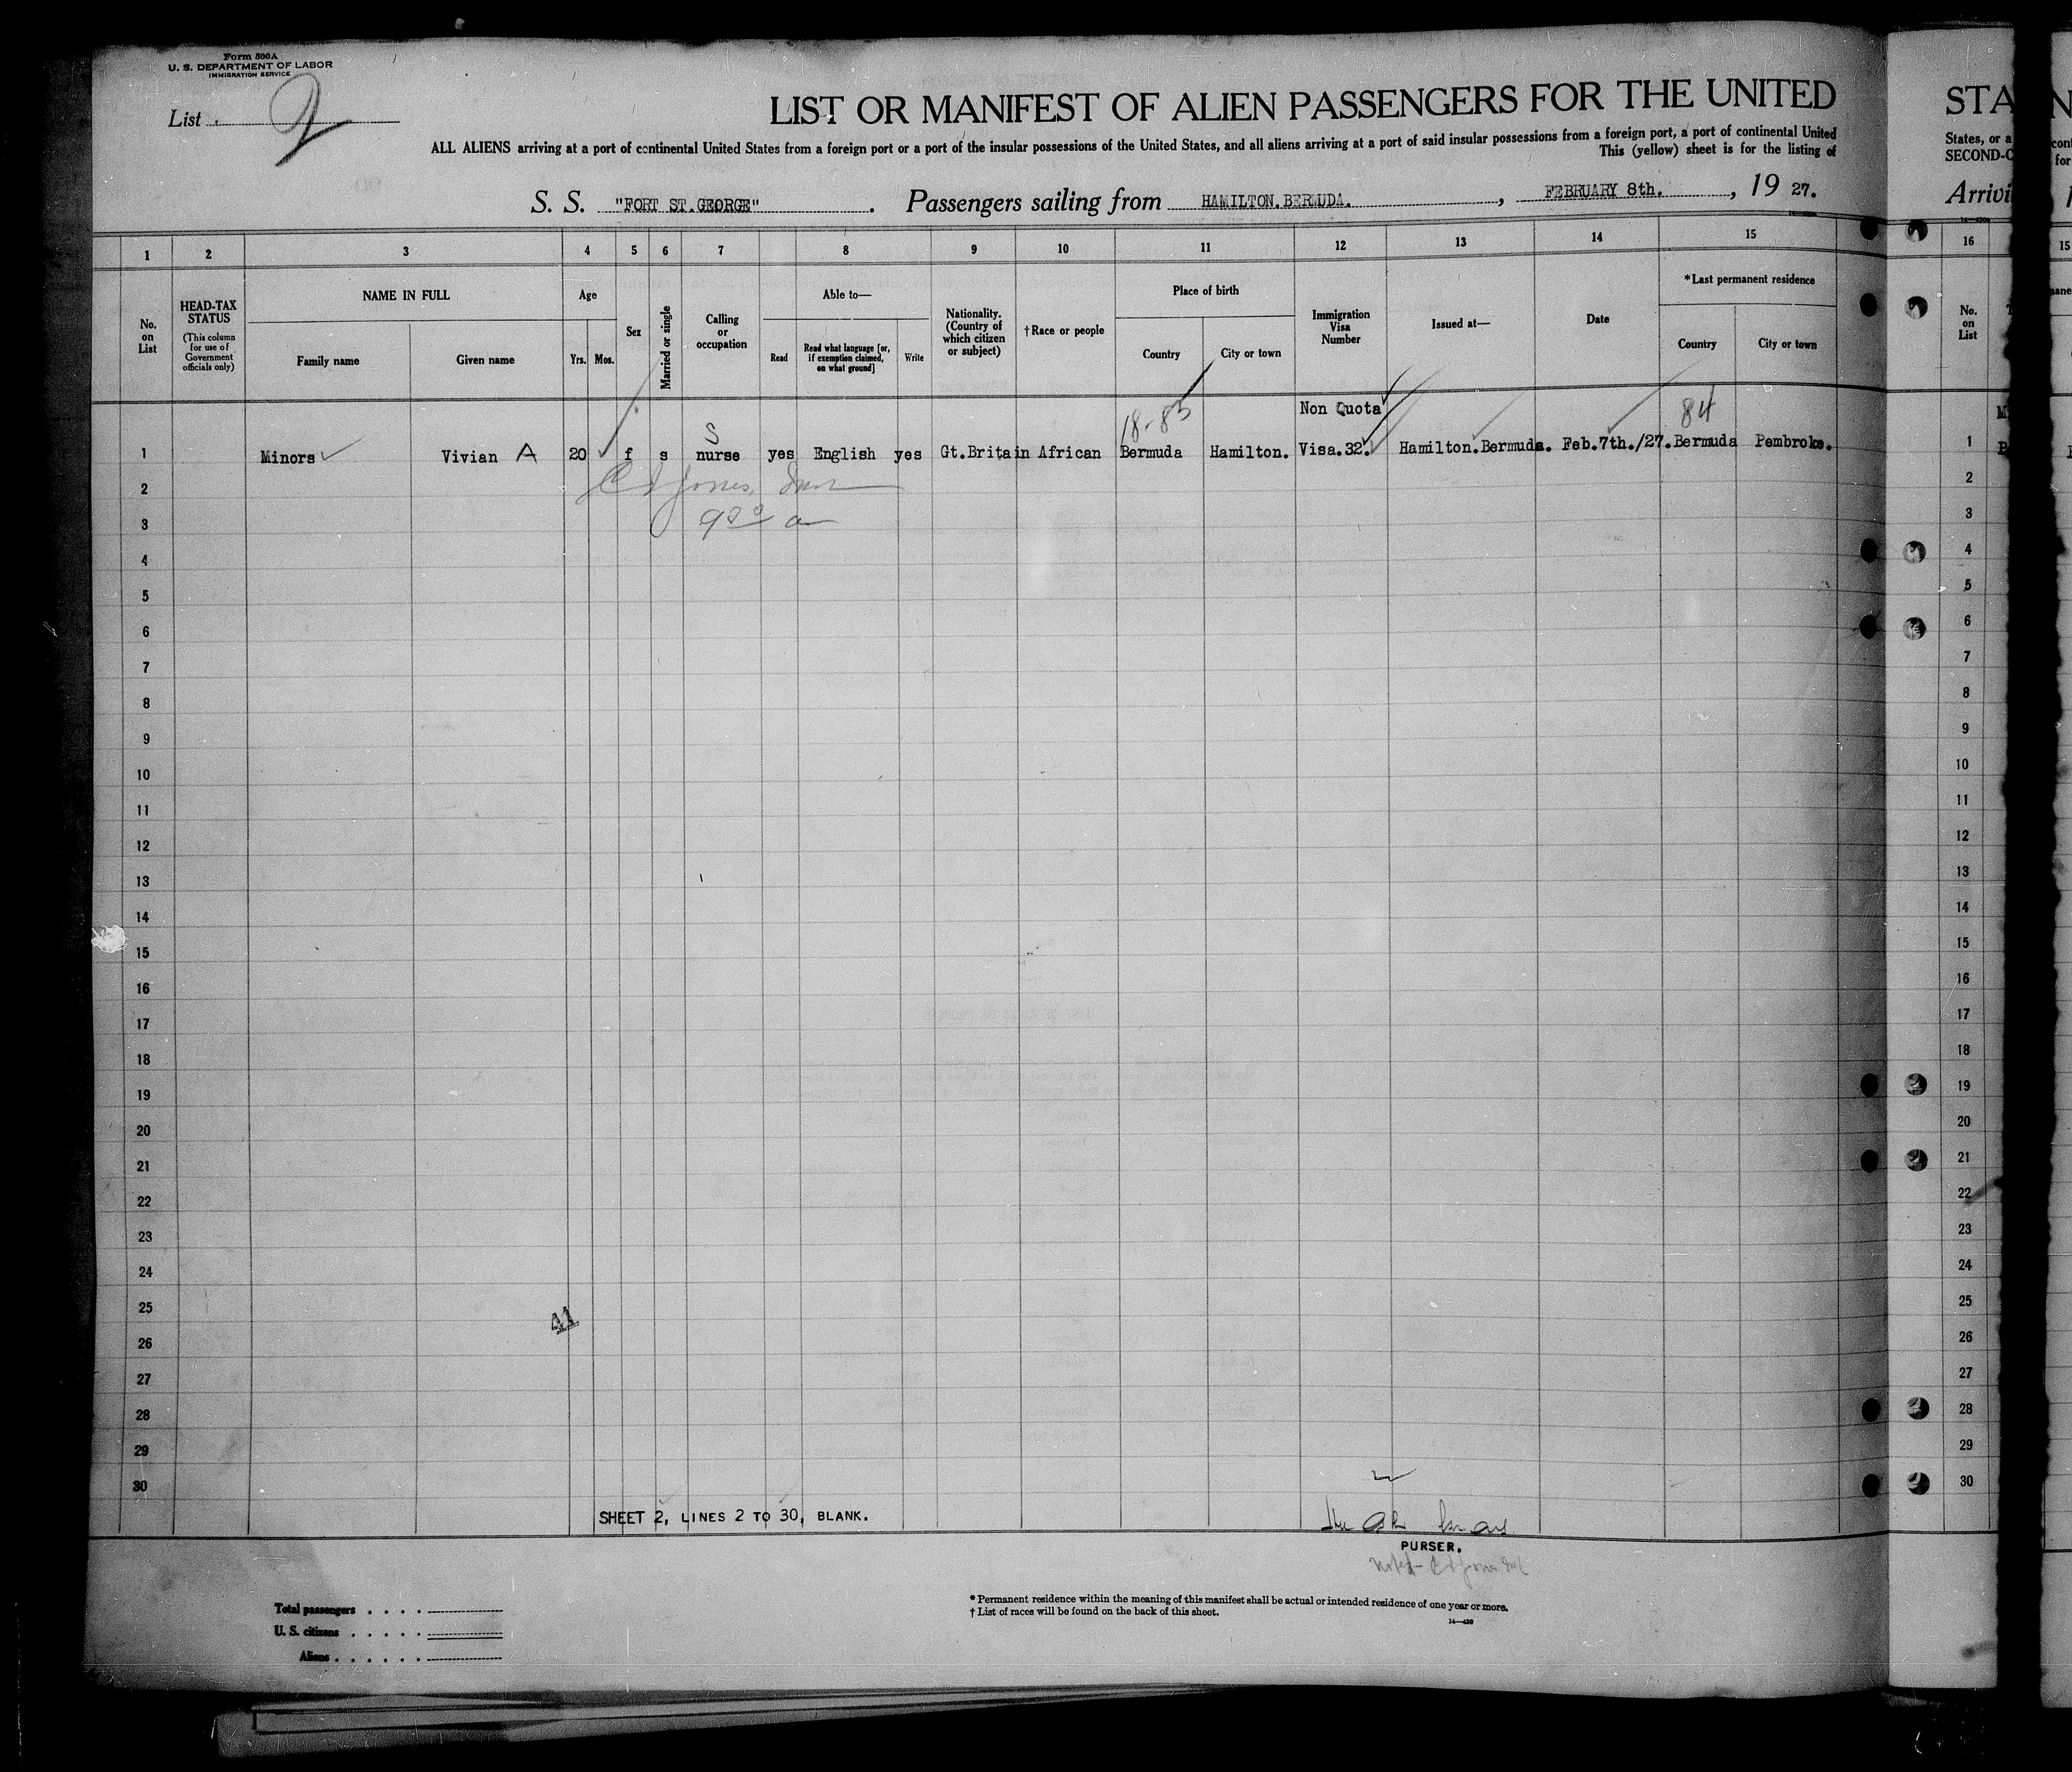 Form 500A
U. S. DEPARTMENT OF LABOR
IMMIGRATION SERVICE
List 2
LIST OR MANIFEST OF ALIEN PASSENGERS FOR THE UNITED
ALL ALIENS arriving at a port of continental United States from a foreign port or a port of the insular possessions of the United States, and all aliens arriving at a port of said insular possessions from a foreign port, a port of continental United
This (yellow) sheet is for the listing of
S. S. "FORT ST.GEORGE". Passengers sailing from HAMILTON.BERMUDA., FEBRUARY 8th., 19 27.
STA
States, or a
SECOND-C
Arrivi
1 2 3 4 5 6 7 8 9 10 11 12 13 14 15 16
No. on List
HEAD-TAX STATUS
(This column for use of Government officials only)
NAME IN FULL
Family name
Given name
Age
Yrs. Mos.
Sex
Married or single
Calling or occupation
Able to—
Read
Read what language [or, if exemption claimed, on what ground]
Write
Nationality. (Country of which citizen or subject)
†Race or people
Place of birth
Country
City or town
Immigration Visa Number
Issued at—
Date
*Last permanent residence
Country
City or town
No. on List
S 18-83 Non Quota 84
1 Minors Vivian A 20 f s nurse yes English yes Gt.Britain African Bermuda Hamilton. Visa.32. Hamilton.Bermuda. Feb.7th./27. Bermuda Pembroke. 1
2 2
3 3
4 4
5 5
6 6
7 7
8 8
9 9
10 10
11 11
12 12
13 13
14 14
15 15
16 16
17 17
18 18
19 19
20 20
21 21
22 22
23 23
24 24
25 25
41
26 26
27 27
28 28
29 29
30 30
SHEET 2, LINES 2 TO 30, BLANK.
PURSER.
Total passengers
U. S. citizens
Aliens
* Permanent residence within the meaning of this manifest shall be actual or intended residence of one year or more.
† List of races will be found on the back of this sheet.